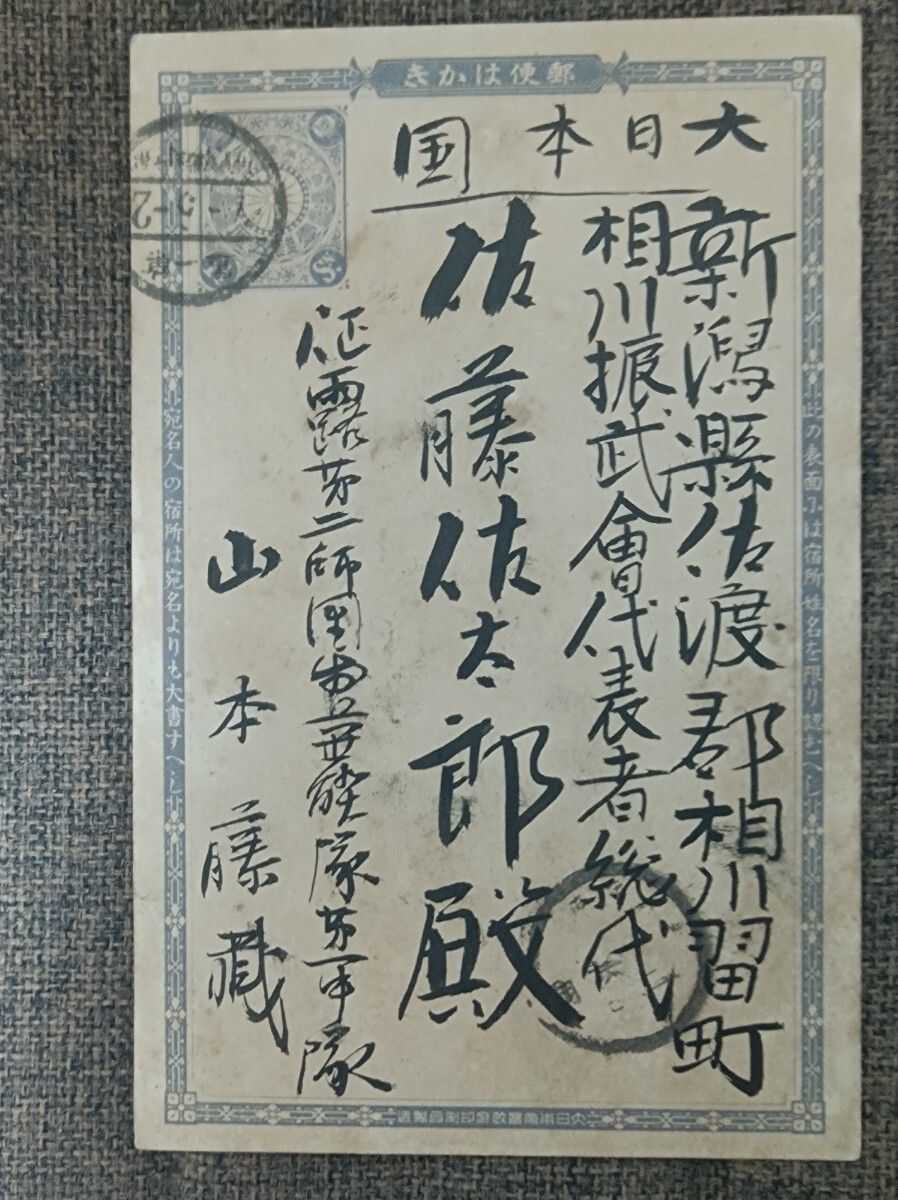 郵便はかき
大日本国
新潟縣佐渡郡相川羽田町
相川振武會代表者総代
佐藤佐太郎殿
征露第二師團兵聯隊第中隊
山本藤蔵
此の表面には宿所姓名を限り認むへし
宛名人の宿所は宛名よりも大書すへし
大日本帝國政府印刷局製造